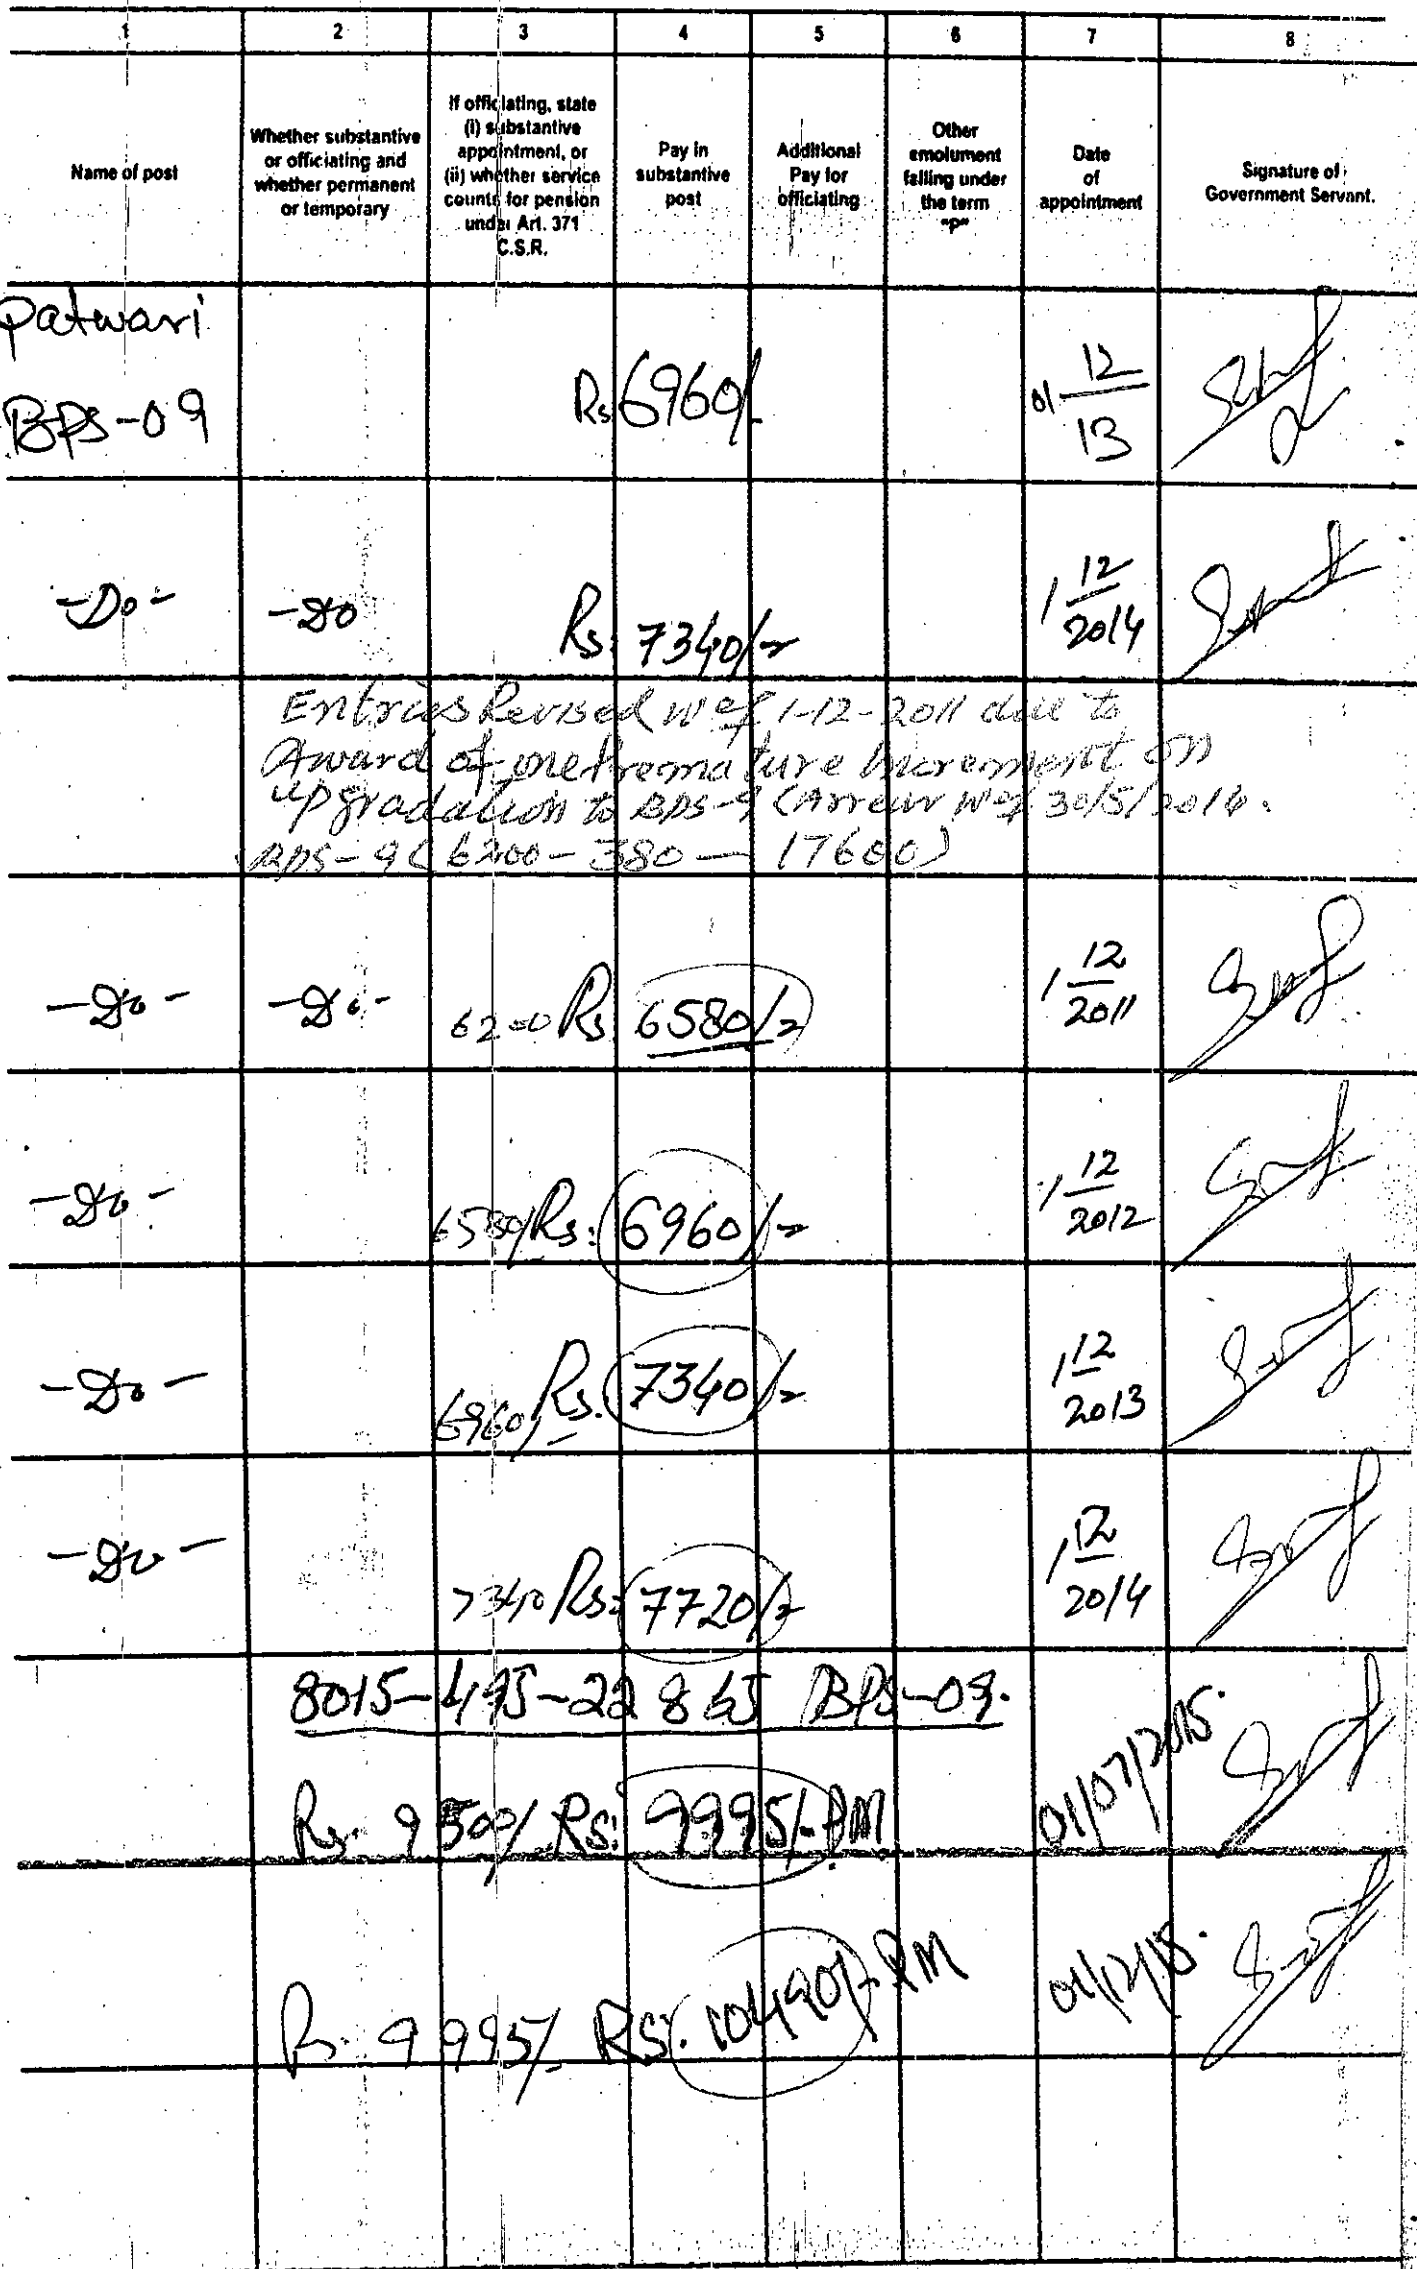 1 2 3 4 5 6 7 8
Name of post
Whether substantive
or officiating and
whether permanent
or temporary
If officiating, state
(i) substantive
appointment, or
(ii) whether service
counts for pension
under Art. 371
C.S.R.
Pay in
substantive
post
Additional
Pay for
officiating
Other
emolument
falling under
the term
"P"
Date
of
appointment
Signature of
Government Servant.
Patwari
BPS-09
Rs 6960/-
01 12/13
-Do- -Do Rs. 7340/- 1 12/2014
Entries Revised wef 1-12-2011 due to
Award of one Premature increment on
upgradation to BPS-9 (Arrear wef 30/5/2014.
BPS-9 (6200-380- 17600)
-Do- -Do- 6200 Rs 6580/- 1 12/2011
-Do- 6580/ Rs: 6960/- 1 12/2012
-Do- 6960/ Rs. 7340/- 1 12/2013
-Do- 7340 Rs: 7720/- 1 12/2014
8015-495-22865 BPS-09.
Rs. 9500/ Rs: 9995/- PM 01/07/2015.
Rs. 9995/- RS/. 10490/- PM 01/12/15.